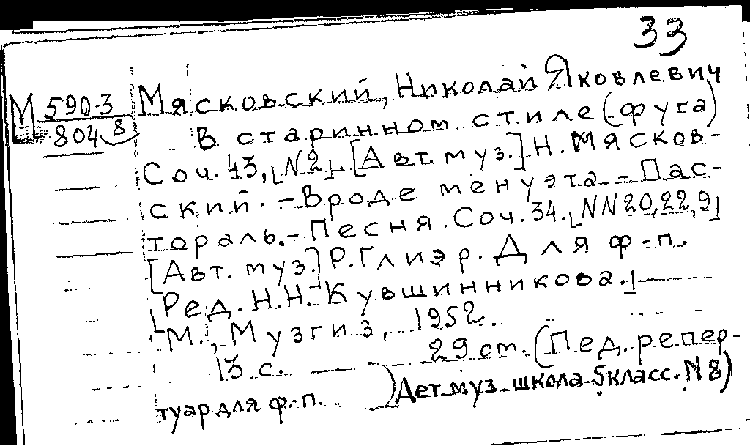 33
М 590-3 Мясковский, Николай Яковлевич
804 8 В старинном стиле (фуга)
Соч. 43, [N2]. [Авт. муз.] Н. Мясков-
ский. - Вроде менуэта. - Пас-
тораль. - Песня. Соч. 34. [NN 20, 22, 9]
[Авт. муз.] Р. Глиэр. Для ф-п.
[Ред. Н.Н. Кувшинникова.]
М., Музгиз, 1952.
13 с. 29 см. (Пед. репер-
туар для ф.-п. Дет. муз. школа. 5 класс. N 8)